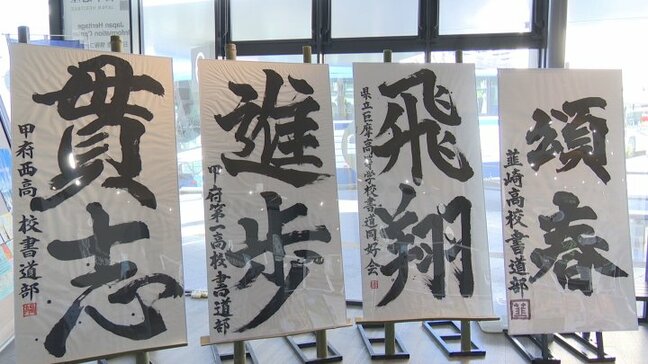 Japan Heritage
貫志
甲府西高校書道部
進歩
甲府第一高校書道部
飛翔
県立巨摩高等学校書道同好会
頌春
韮崎高校書道部